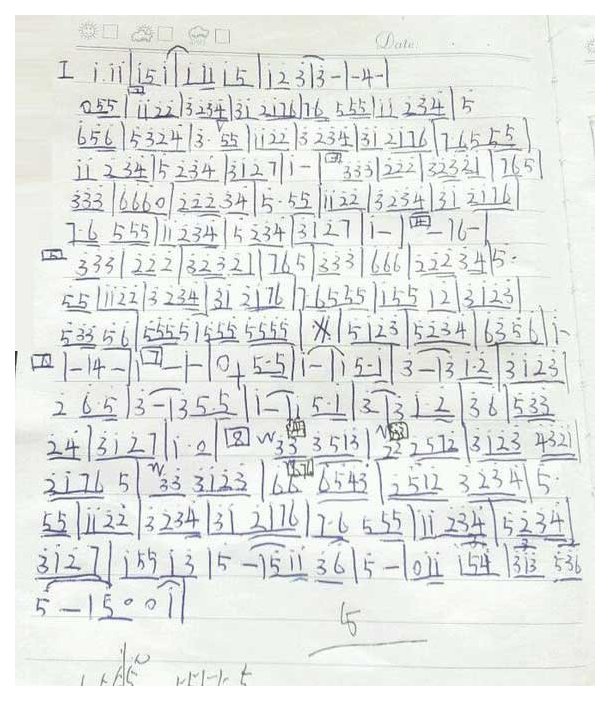 Date:
I 1.11|151|1115|123|3-|-4-|
055|1122|3234|312176|76 555|11 234|5
656|5324|3·55|1122|3234|312176|76555|
11 234|5234|3127|1-|3 333|222|32321|765|
333|6660|22234|5·55|1122|3234|31 2176|
7·6 555|11234|5234|3127|1-|4-16-|
5 333|222|32321|765|333|666|22234|5·
55|1122|3234|31 2176|76555|155 12|3123|
533 56|5555|555 5555||5123|5234|6356|1-
|-14-|7-|-|0 5·5|1-|15·1|3-|31·2|3123|
2 6·5|3-|355|1-|15·1|3-|31·2|36|533
24|3127|1·0|8 33 3513|22 2512|3123 4321|
2176 5|33 3123|66 6543|2512 3234|5·
55|1122|3234|31 2176|7·6 555|11 234|5234|
3127|15513|5-|1511 36|5-|011 154|313 536
5-|500 1|
5